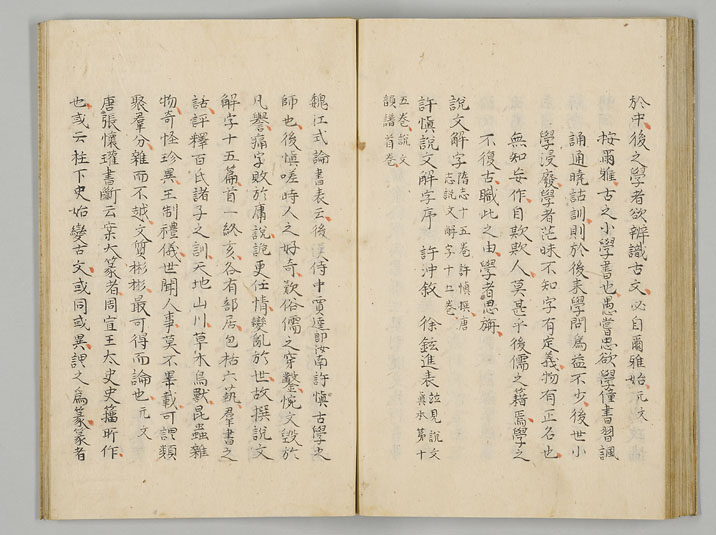 於中後之學者欲辨識古文必自爾雅始元文
按爾雅古之小學書也愚嘗思欲學僮書習諷
誦通曉詁訓則於後来學問為益不少後世小
學浸廢學者茫昧不知字有定義物有正名也
無知妄作自欺欺人莫甚乎後儒之籍焉學之
不復古職此之由學者思旃
說文解字隋志十五卷許慎撰唐
志說文解字十五卷
許慎說文解字序 許沖敘 徐鉉進表並見說文
眞本第十
五卷說文
韻譜首卷
魏江式論書表云後漢侍中賈逵即汝南許慎古學之
師也後慎嗟時人之好奇歎俗儒之穿鑿惋文毀於
凡譽痛字敗於庸說詭更任情變亂於世故撰說文
解字十五篇首一終亥各有部居包括六藝群書之
詁評釋百氏諸子之訓天地山川草木鳥獸昆蟲雜
物奇怪珍異王制禮儀世間人事莫不畢載可謂類
聚群分雜而不越文質彬彬最可得而論也元文
唐張懷瓘書斷云案大篆者周宣王太史史籀所作
也或云柱下史始變古文或同或異謂之為篆篆者